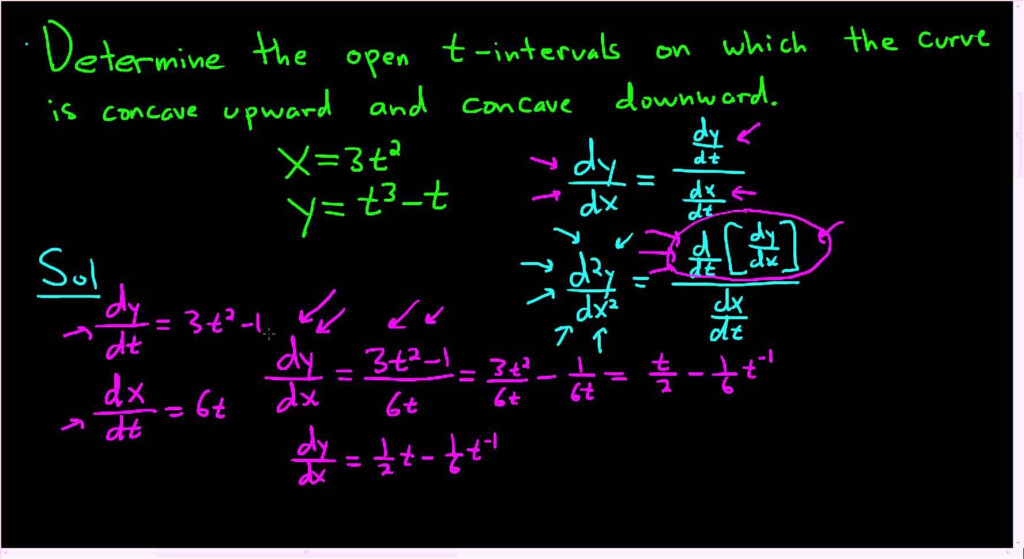 Determine the open t-intervals on which the curve
is concave upward and concave downward.
x = 3t²
y = t³ - t
dy/dx = (dy/dt)/(dx/dt)
d²y/dx² = (d/dt [dy/dx])/(dx/dt)
Sol
dy/dt = 3t² - 1
dx/dt = 6t
dy/dx = (3t² - 1)/6t = 3t²/6t - 1/6t = t/2 - 1/6 t⁻¹
dy/dx = 1/2 t - 1/6 t⁻¹